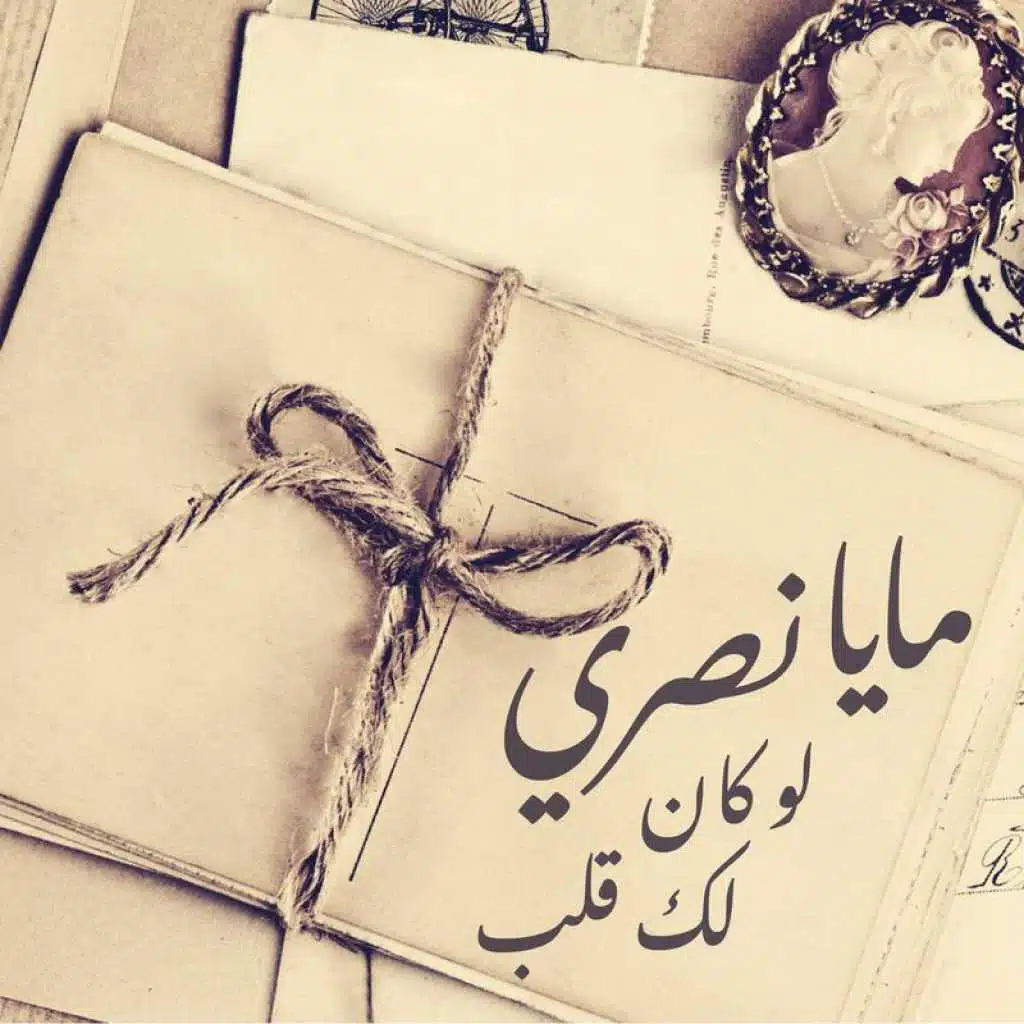 مايا نصري
لو كان
لك قلب
Rue des Augustin
R